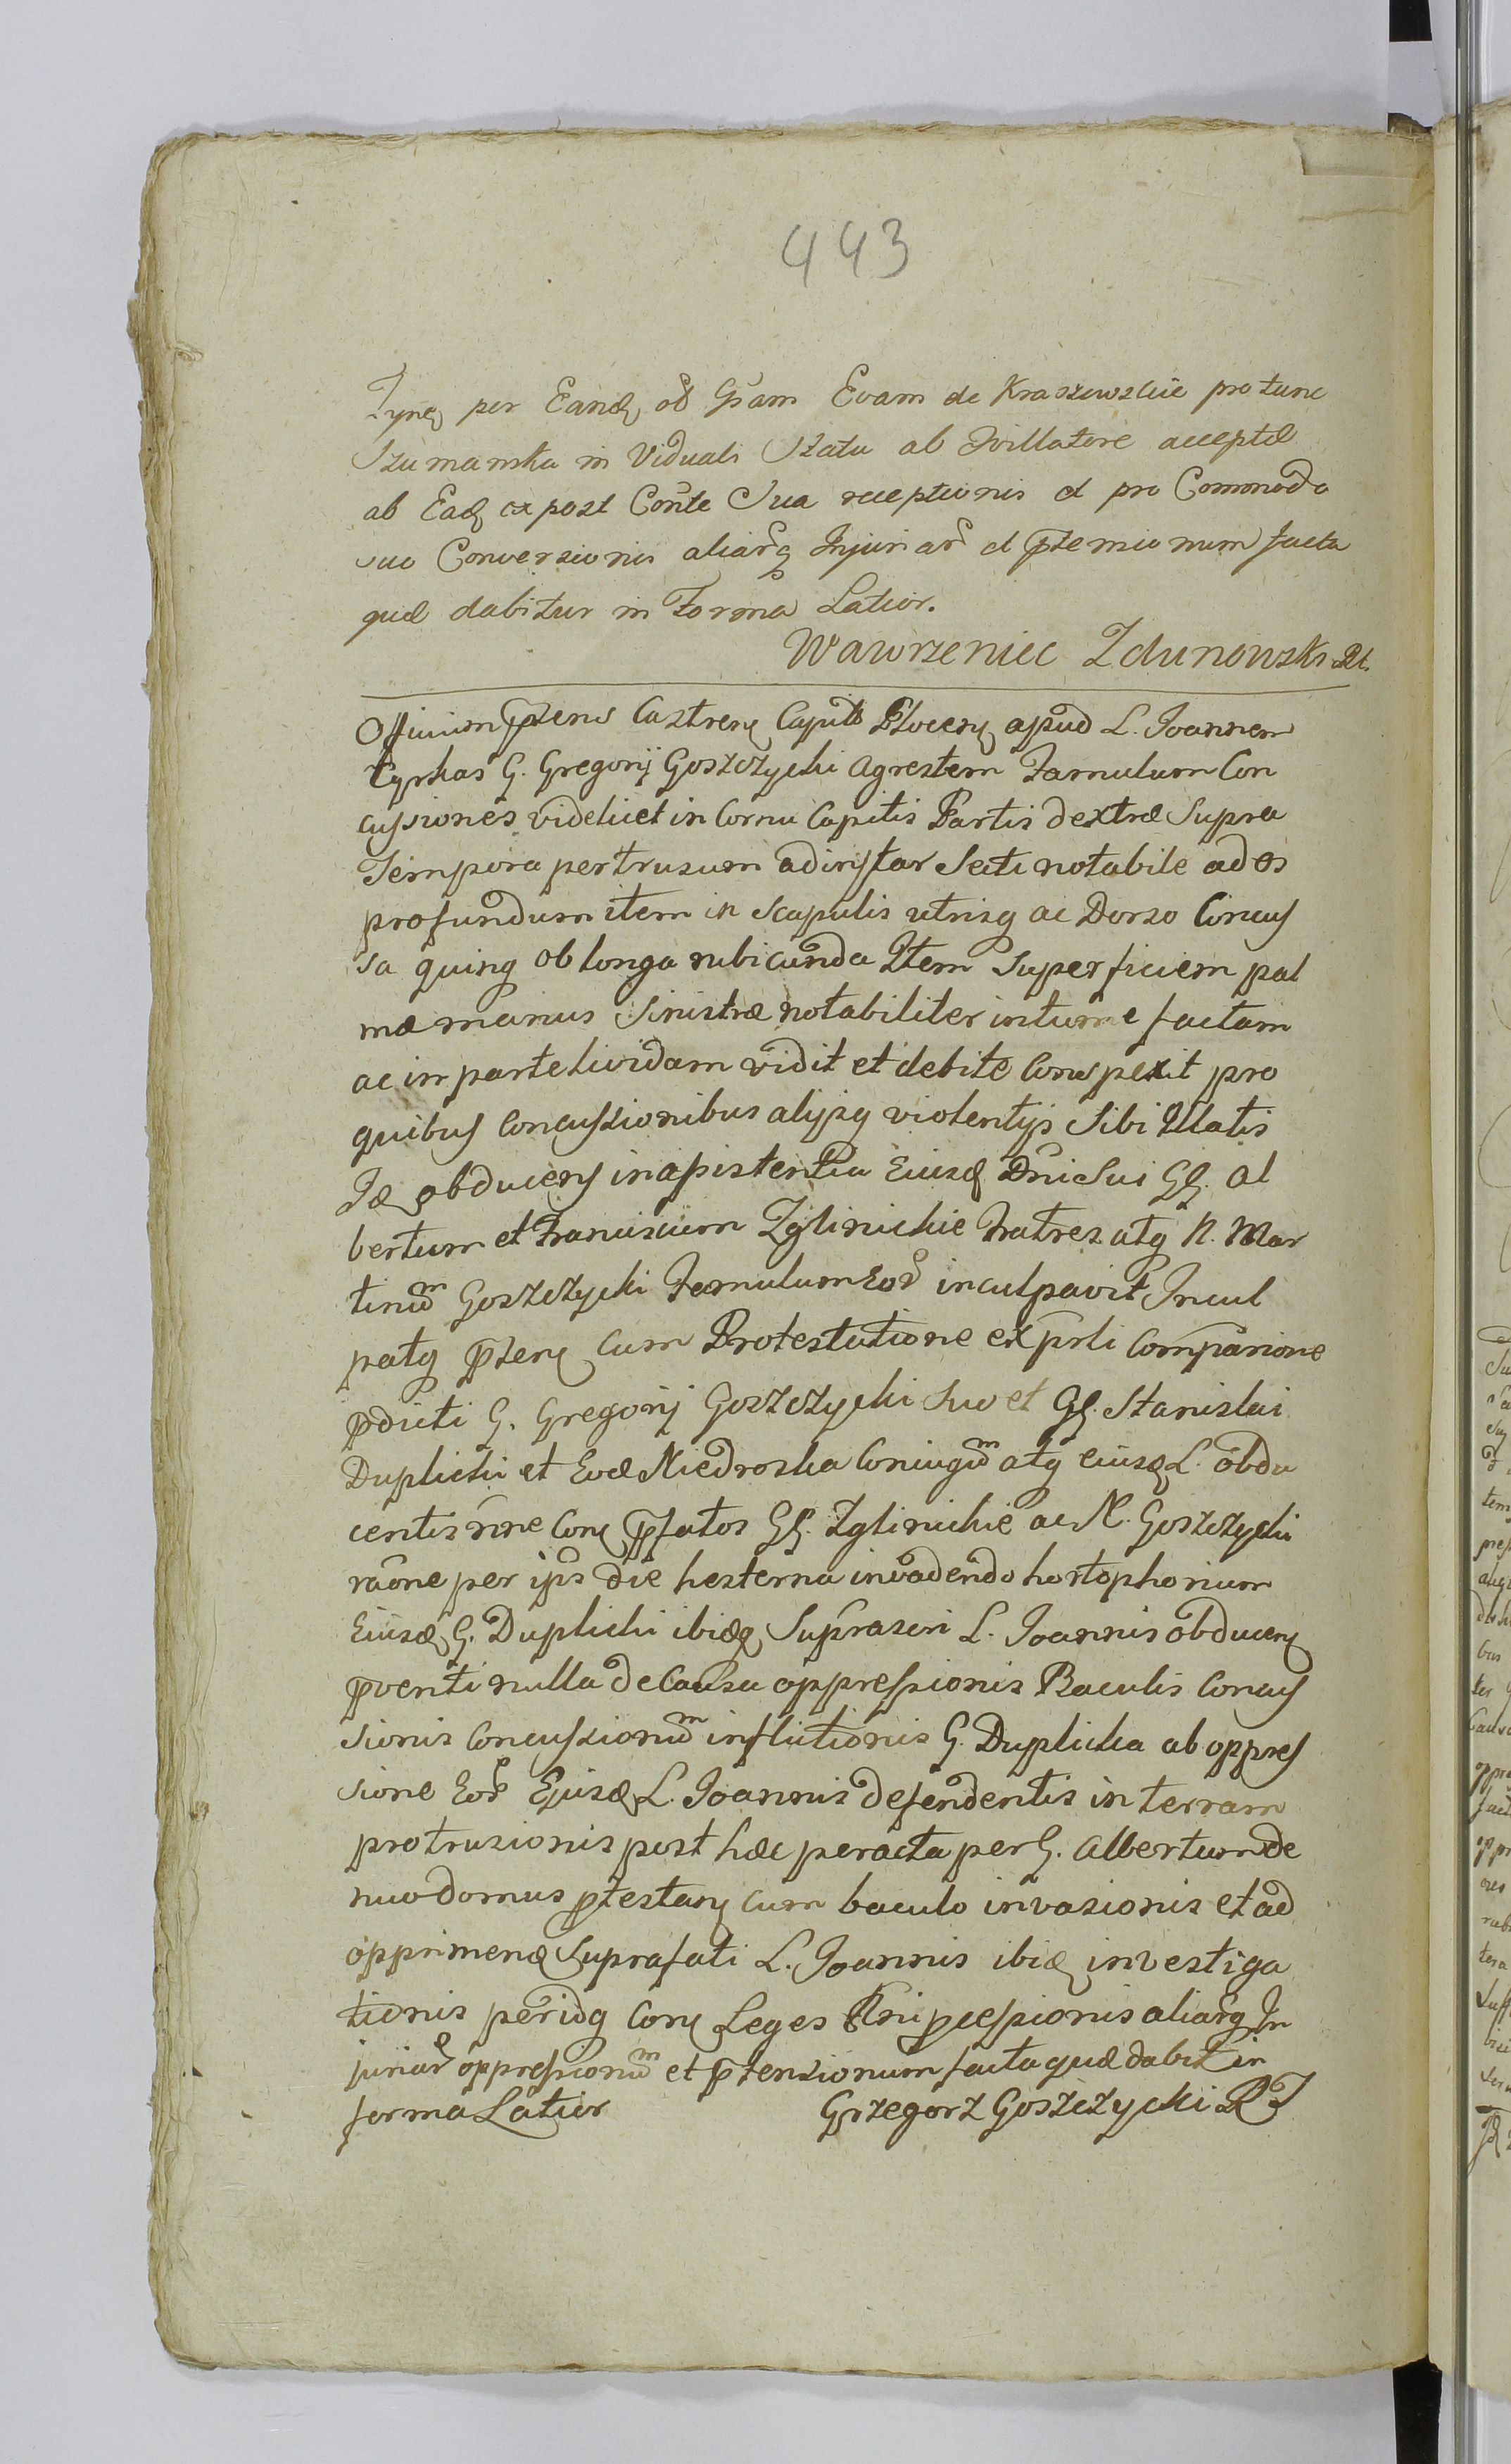 443
per Eand ob Gsam Evam de Kraszewskie pro tunc
Szumanska in Viduali Statu ab acceptæ
ab Ead ex post Conte Sua receptionis et pro Commodo
suo Conversionis aliarq Injuriar et ptensionum facta
quæ dabitur in Forma Latior.
Wawrzeniec Zdunowski
Officium pzens Castren Capit Plocen apud L. Joannem
Cyrkas G. Gregorij Goszczycki agrestem Famulum Con
cussiones videlicet in Cornu Capitis Partis dextræ Supra
Tempora pertrusum ad instar Secti notabile ad os
profundum item in Scapulis utrisq ac Dorso Concus
sa quinq oblonga rubicunda Item Superficiem pal
mæ manus Sinistræ notabiliter intume factam
ac in parte lividam vidit et debite Conspexit pro
quibus Concussionibus alijsq violentijs Sibi Illatis
Id obducens in assistentia Eiusd Dni Sui GG. Al
bertum et Franciscum Zglinickie Fratres atq N. Mar
tinum Goszczycki Famulum Eor inculpavit Incul
patq pzens Cum Protestatione ex psli Comparione
pdicti G. Gregorij Goszczycki Suo et GG. Stanislai
Duplicki et Evæ Niedroska Coniugum atq eiusd L. obdu
centis nne Con pfatos GG. Zglinickie ac N. Goszczycki
raone per ipos die hesterna invadendo hortophorium
Eiusd G. Duplicki ibidq Suprascri L. Joannis obducen
pventi nulla de Causa oppressionis Baculis Concus
sionis Concussionum inflictionis G. Duplicka ab oppres
sione Eor Ejusd L. Joannis defendentis in terram
protrusionis post hæc peracta per G. Albertum de
nuo domus ptestan cum baculo invasionis et ad
opprimend Suprafati L. Joannis ibid investiga
tionis peridq Con Leges Rni pcessionis aliarq In
juriar oppressionum et ptensionum facta quæ dabit in
forma Latior
Grzegorz Goszczycki